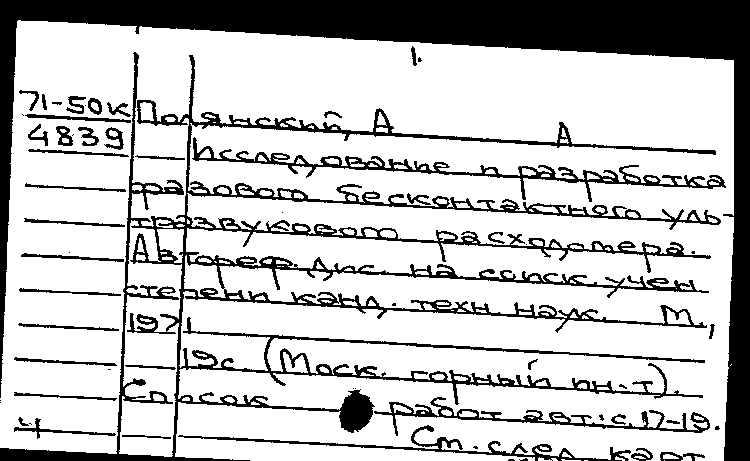 1.
71-50к Полянский, А А
4839 Исследование и разработка
фазового бесконтактного уль-
тразвукового расходомера.
Автореф. дис. на соиск. учен.
степени канд. техн. наук. М.,
1971.
19с. (Моск. горный ин-т).
Список работ авт.: с. 17-19.
4 См. след. карт